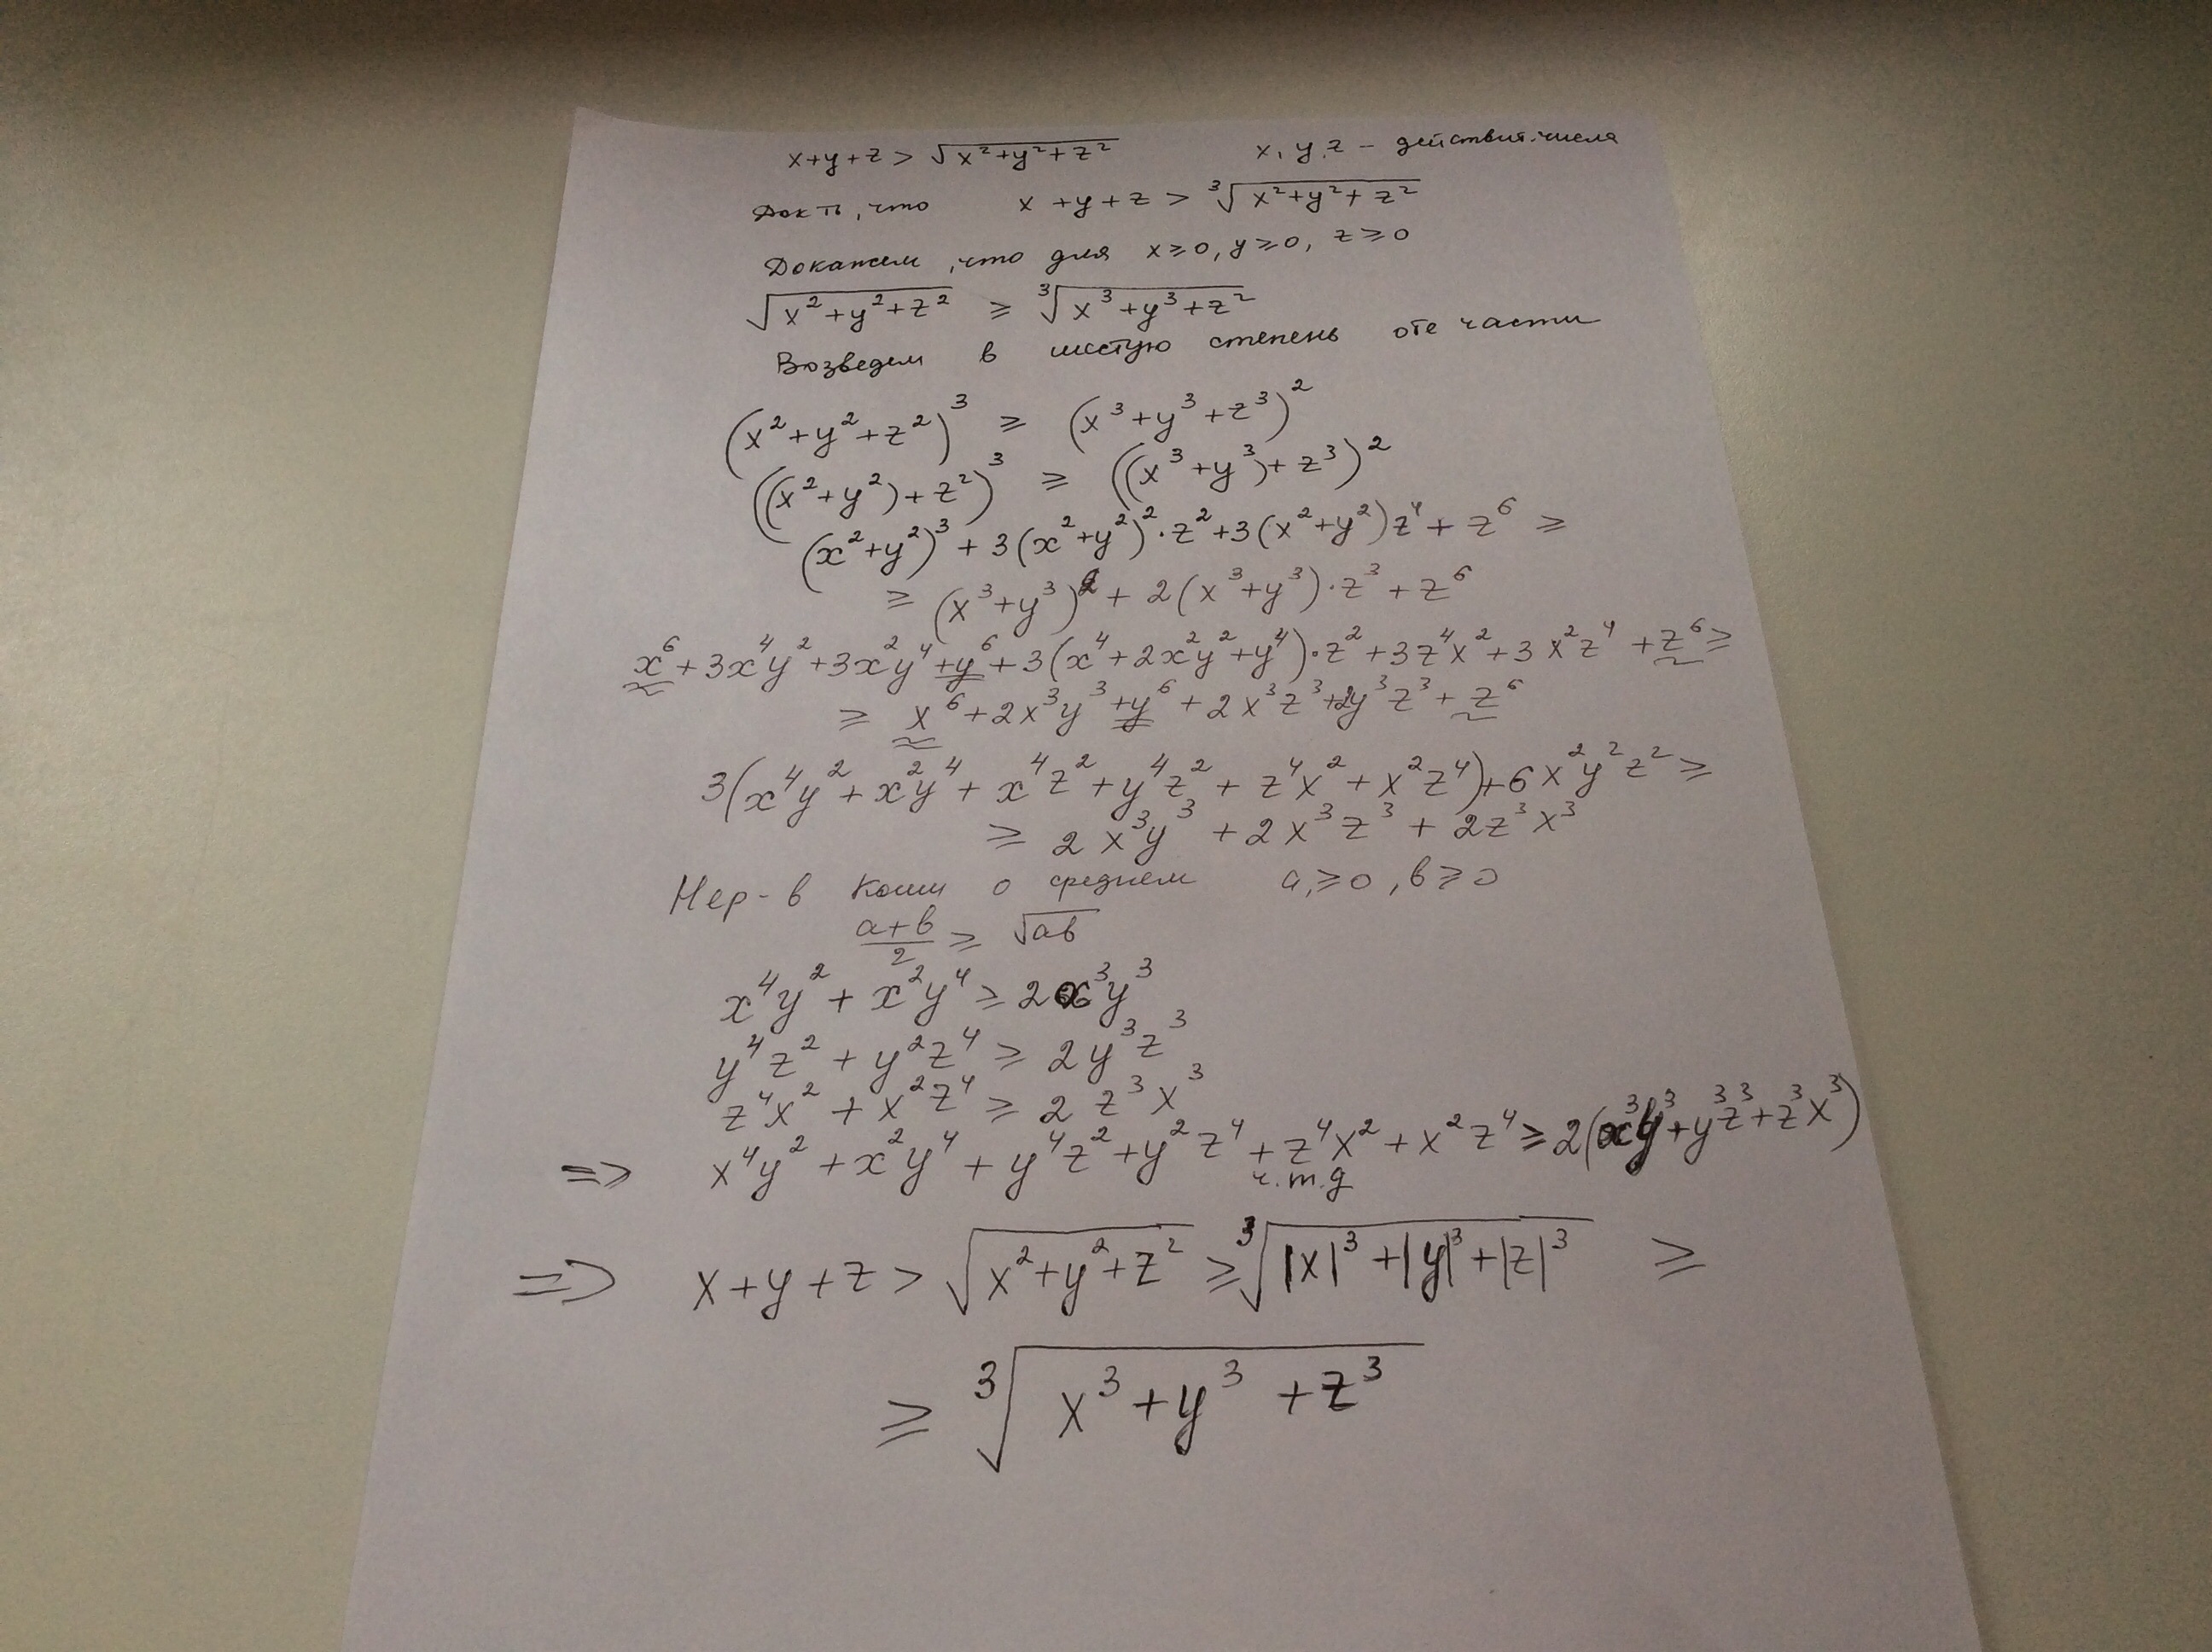 x+y+z > √(x²+y²+z²) x, y, z – действит. числа
Док-ть, что x+y+z > ∛(x²+y²+z²)
Докажем, что для x≥0, y≥0, z≥0
√(x²+y²+z²) ≥ ∛(x³+y³+z²)
Возведем в шестую степень обе части
(x²+y²+z²)³ ≥ (x³+y³+z³)²
((x²+y²)+z²)³ ≥ ((x³+y³)+z³)²
(x²+y²)³ + 3(x²+y²)²·z² + 3(x²+y²)z⁴ + z⁶ ≥
≥ (x³+y³)² + 2(x³+y³)·z³ + z⁶
x⁶ + 3x⁴y² + 3x²y⁴ + y⁶ + 3(x⁴+2x²y²+y⁴)·z² + 3z⁴x² + 3x²z⁴ + z⁶ ≥
≥ x⁶ + 2x³y³ + y⁶ + 2x³z³ + 2y³z³ + z⁶
3(x⁴y² + x²y⁴ + x⁴z² + y⁴z² + z⁴x² + x²z⁴) + 6x²y²z² ≥
≥ 2x³y³ + 2x³z³ + 2z³x³
Нер-в Коши о среднем a≥0, в≥0
(a+в)/2 ≥ √aв
x⁴y² + x²y⁴ ≥ 2x³y³
y⁴z² + y²z⁴ ≥ 2y³z³
z⁴x² + x²z⁴ ≥ 2z³x³
=> x⁴y² + x²y⁴ + y⁴z² + y²z⁴ + z⁴x² + x²z⁴ ≥ 2(x³y³ + y³z³ + z³x³)
ч.т.д
=> x+y+z > √(x²+y²+z²) ≥ ∛(|x|³+|y|³+|z|³) ≥
≥ ∛(x³+y³+z³)